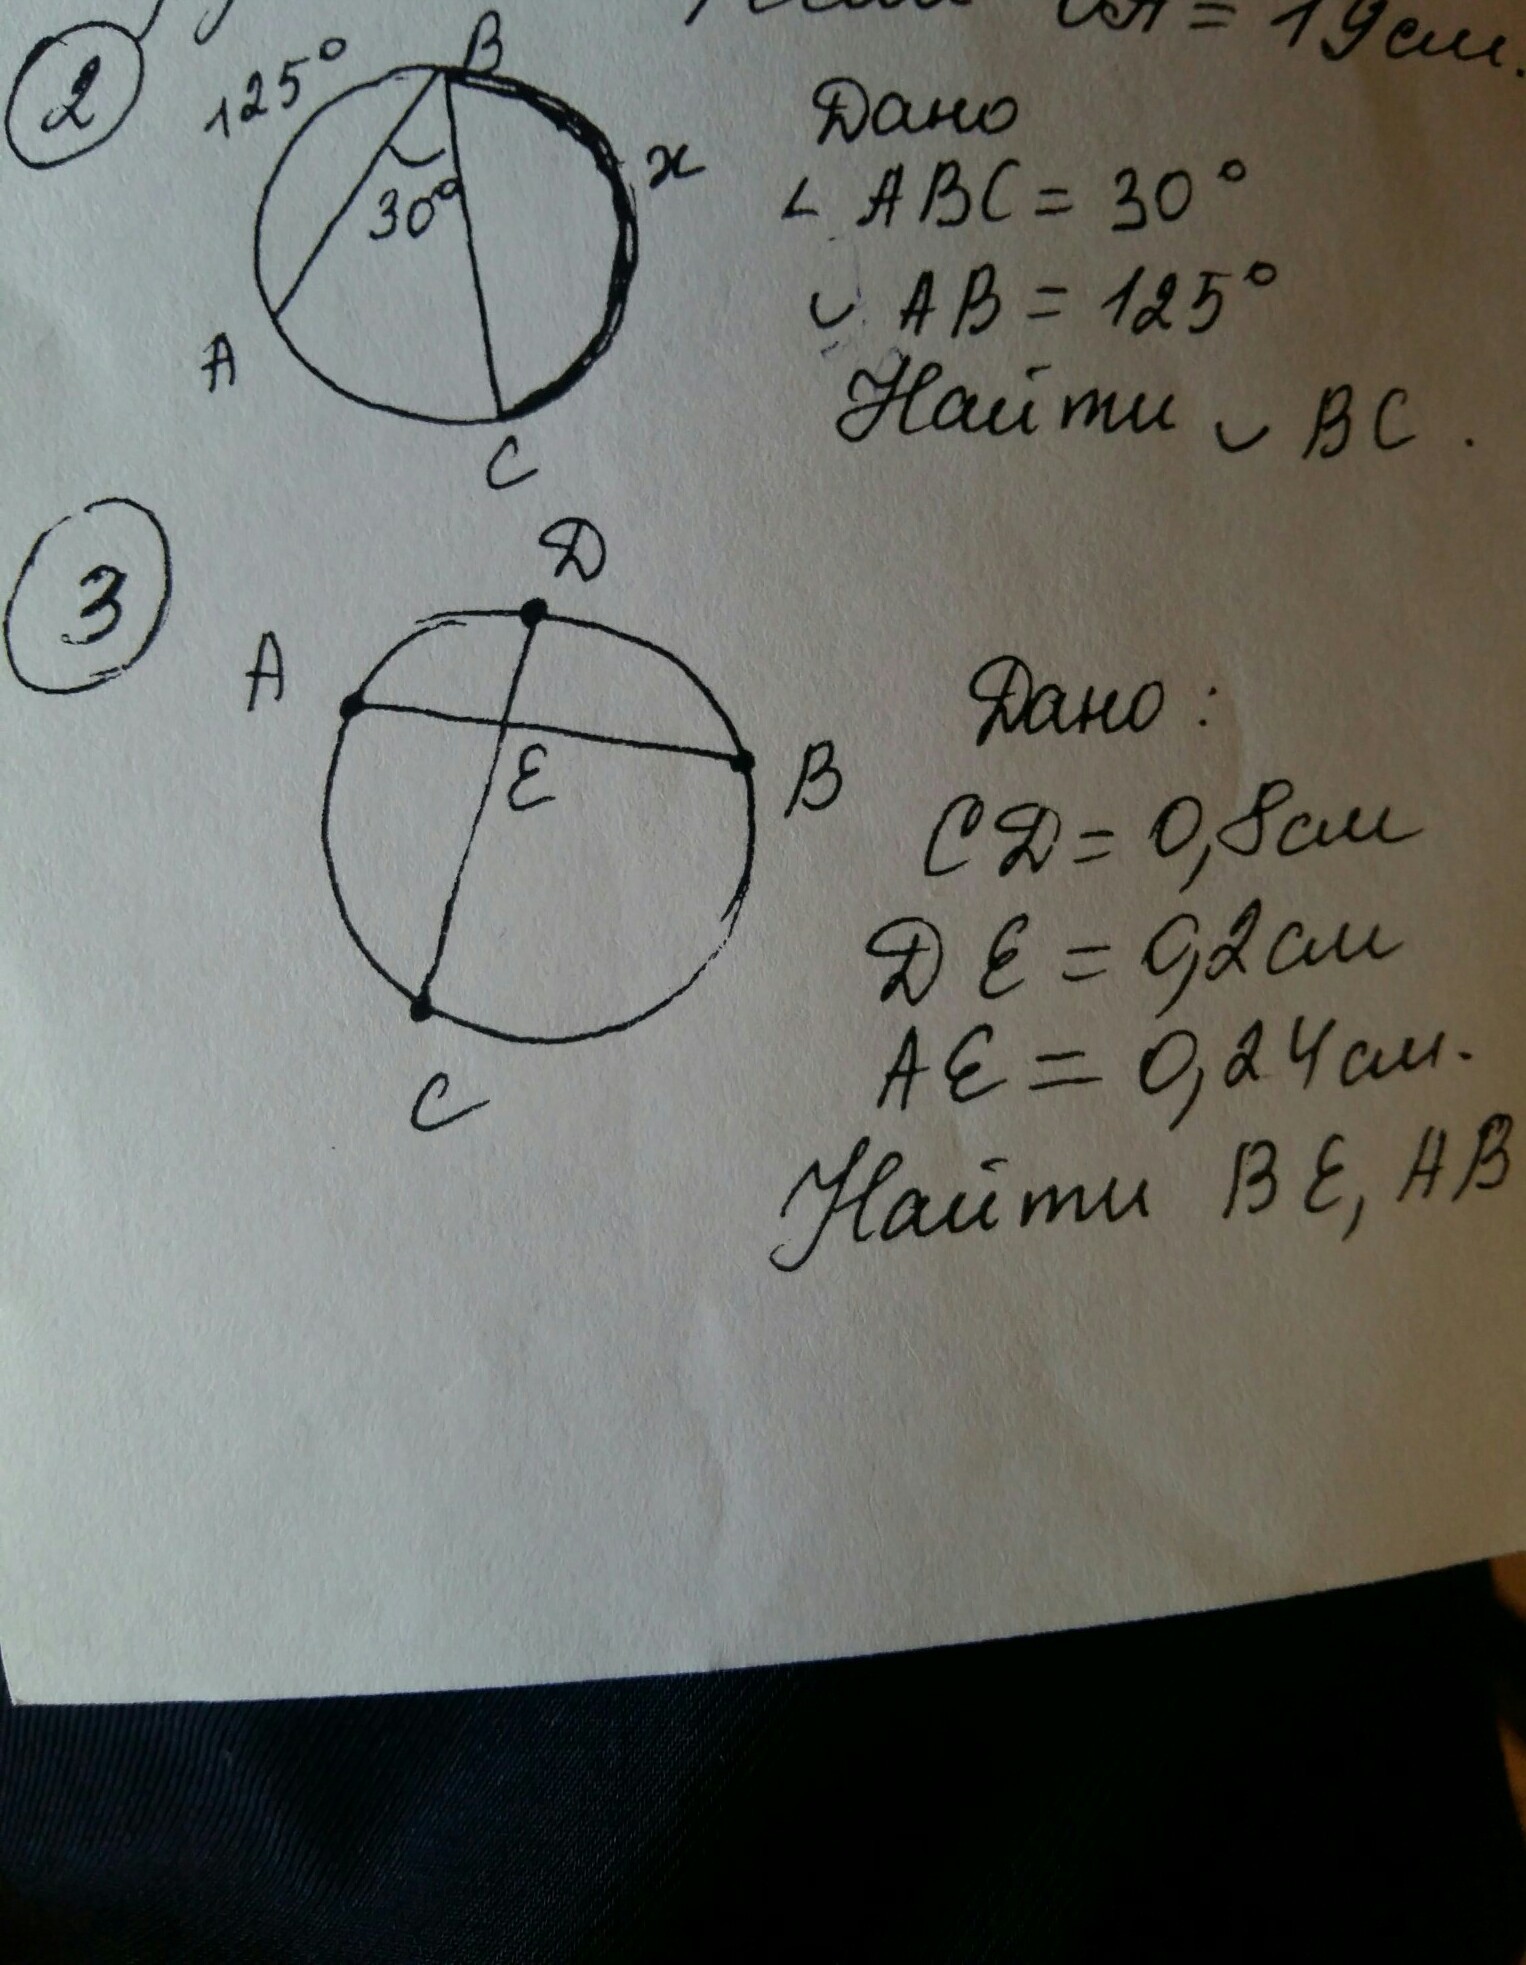 = 19 см.
2
125°
B
x
30°
A
C
Дано
∠ ABC = 30°
◡ AB = 125°
Найти ◡ BC.
3
D
A
E
B
C
Дано:
CD = 0,8 см
DE = 0,2 см
AE = 0,24 см.
Найти BE, AB